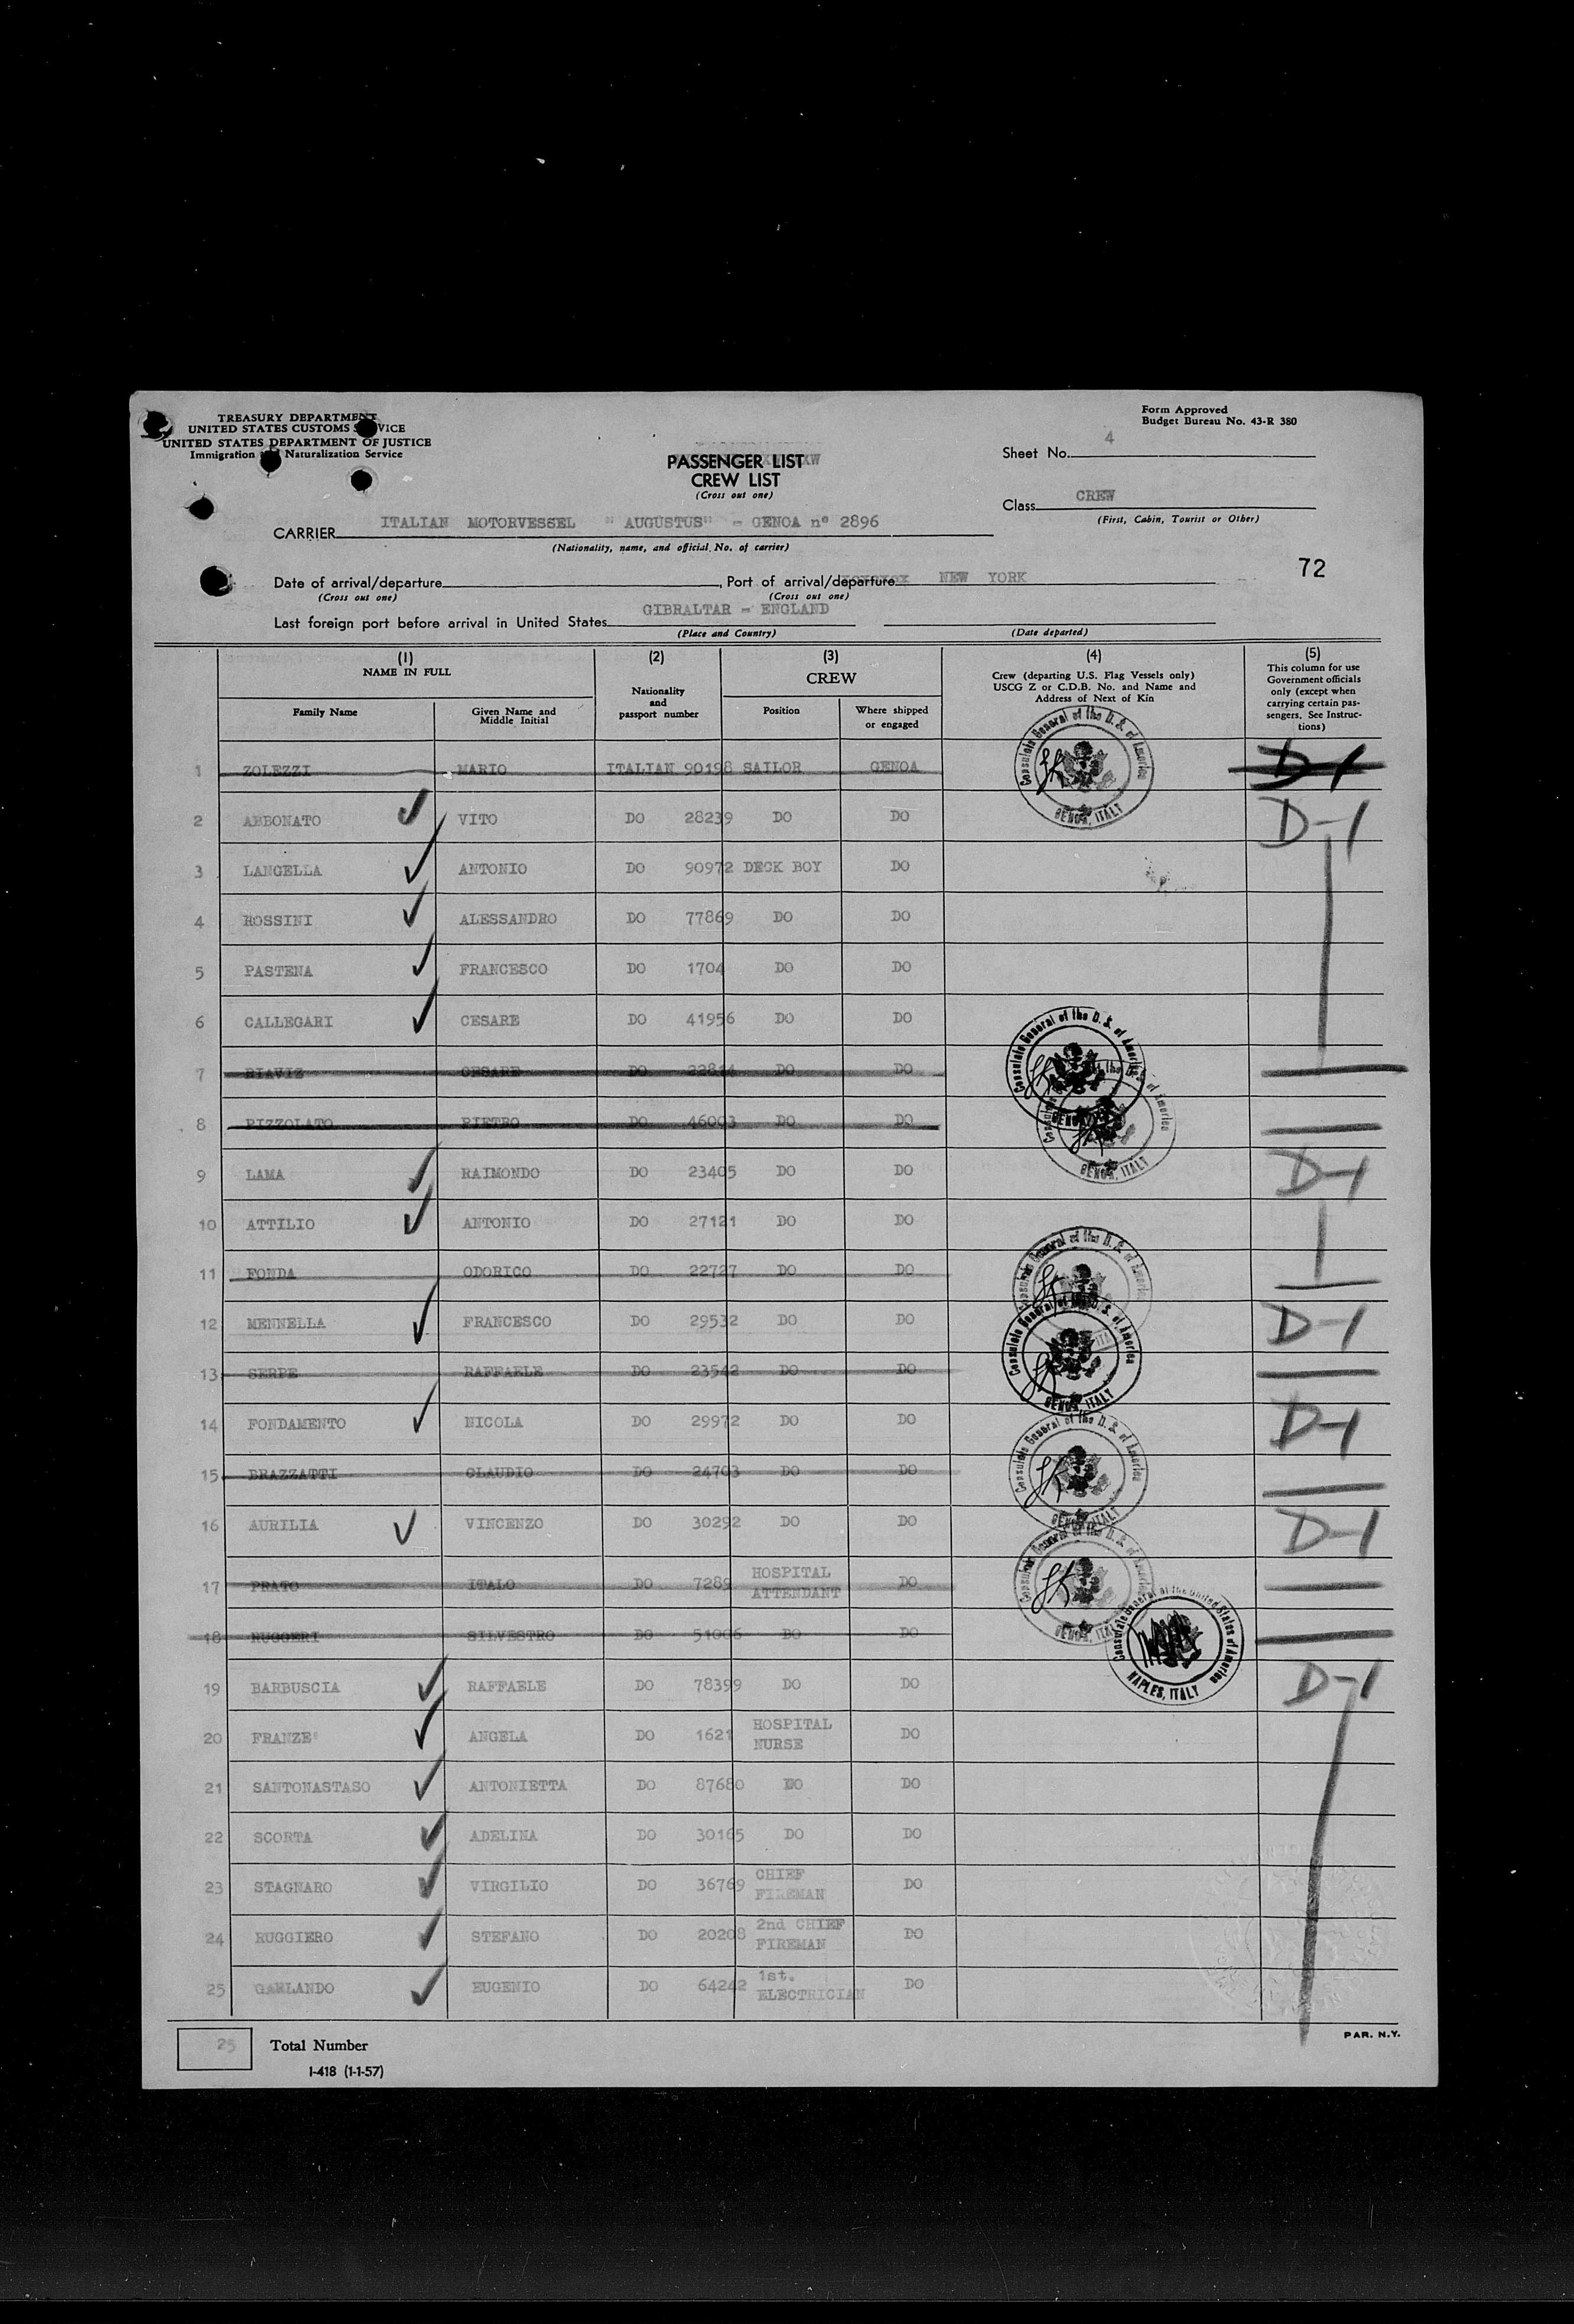 TREASURY DEPARTMENT
UNITED STATES CUSTOMS SERVICE
UNITED STATES DEPARTMENT OF JUSTICE
Immigration and Naturalization Service
Form Approved
Budget Bureau No. 43-R 380
Sheet No. 4
PASSENGER LIST
CREW LIST
(Cross out one)
Class CREW
(First, Cabin, Tourist or Other)
CARRIER ITALIAN MOTORVESSEL "AUGUSTUS" - GENOA n° 2896
(Nationality, name, and official No. of carrier)
72
Date of arrival/departure , Port of arrival/departure NEW YORK
(Cross out one) (Cross out one)
Last foreign port before arrival in United States GIBRALTAR - ENGLAND
(Place and Country) (Date departed)
(1) NAME IN FULL
Family Name
Given Name and Middle Initial
(2) Nationality and passport number
(3) CREW
Position
Where shipped or engaged
(4) Crew (departing U.S. Flag Vessels only) USCG Z or C.D.B. No. and Name and Address of Next of Kin
(5) This column for use Government officials only (except when carrying certain passengers. See Instructions)
1 ZOLEZZI MARIO ITALIAN 90198 SAILOR GENOA D-1
2 ABBONATO VITO DO 28239 DO DO D-1
3 LANGELLA ANTONIO DO 90972 DECK BOY DO
4 ROSSINI ALESSANDRO DO 77869 DO DO
5 PASTENA FRANCESCO DO 1704 DO DO
6 CALLEGARI CESARE DO 41956 DO DO
7 RIAVIZ CESARE DO DO DO
8 PIZZOLATO PIETRO DO 46003 DO DO
9 LAMA RAIMONDO DO 23405 DO DO D-1
10 ATTILIO ANTONIO DO 27121 DO DO
11 FONDA ODORICO DO 22727 DO DO
12 MENNELLA FRANCESCO DO 29532 DO DO D-1
13 SERPE RAFFAELE DO 23542 DO DO
14 FONDAMENTO NICOLA DO 29972 DO DO D-1
15 BRAZZATTI CLAUDIO DO 24703 DO DO
16 AURILIA VINCENZO DO 30292 DO DO D-1
17 PRATO ITALO DO 7289 HOSPITAL ATTENDANT DO
18 RUGGERI SILVESTRO DO 51006 DO DO
19 BARBUSCIA RAFFAELE DO 78399 DO DO D-1
20 FRANZE' ANGELA DO 1621 HOSPITAL NURSE DO
21 SANTONASTASO ANTONIETTA DO 87680 DO DO
22 SCORTA ADELINA DO 30165 DO DO
23 STAGNARO VIRGILIO DO 36769 CHIEF FIREMAN DO
24 RUGGIERO STEFANO DO 20208 2nd CHIEF FIREMAN DO
25 GARLANDO EUGENIO DO 64242 1st. ELECTRICIAN DO
Consulate General of the U. S. of America
GENOA, ITALY
Consulate General of the U. S. of America
GENOA, ITALY
Consulate General of the United States of America
NAPLES, ITALY
25 Total Number
I-418 (1-1-57)
PAR. N.Y.